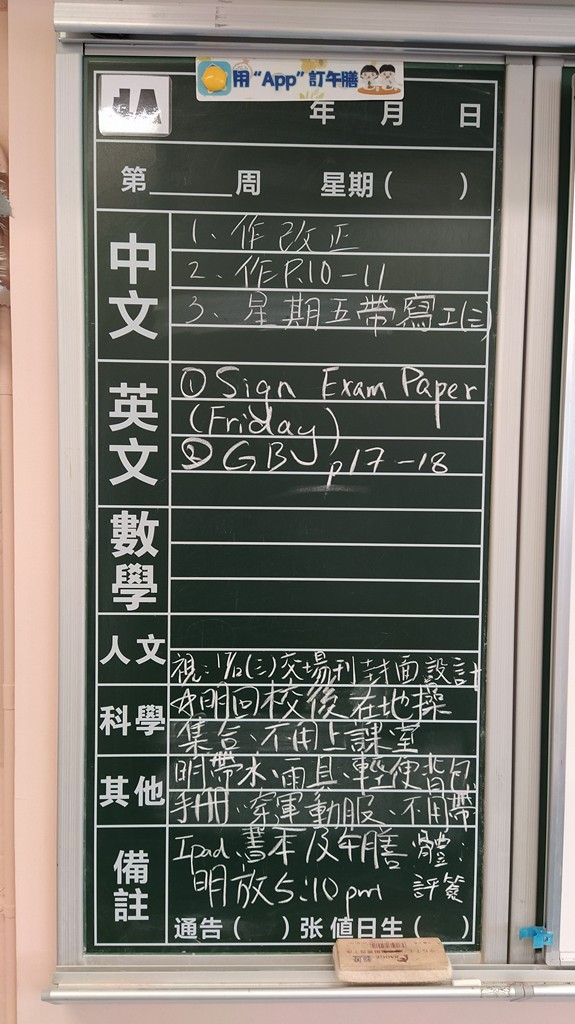 用“App”訂午膳
年 月 日
第 周 星期( )
中文
1、作改正
2、作P.10-11
3、星期五帶寫工(三)
英文
① Sign Exam Paper
(Friday)
② GB p17-18
數學
人文
視：(三)交場刊封面設計
科學
明回校後在地操
集合、不用上課室
其他
明帶水、雨具、輕便背包
手冊、穿運動服、不用帶
備註
Ipad、書本及午膳 體：
明放5:10pm 評簽
通告( )张 值日生( )